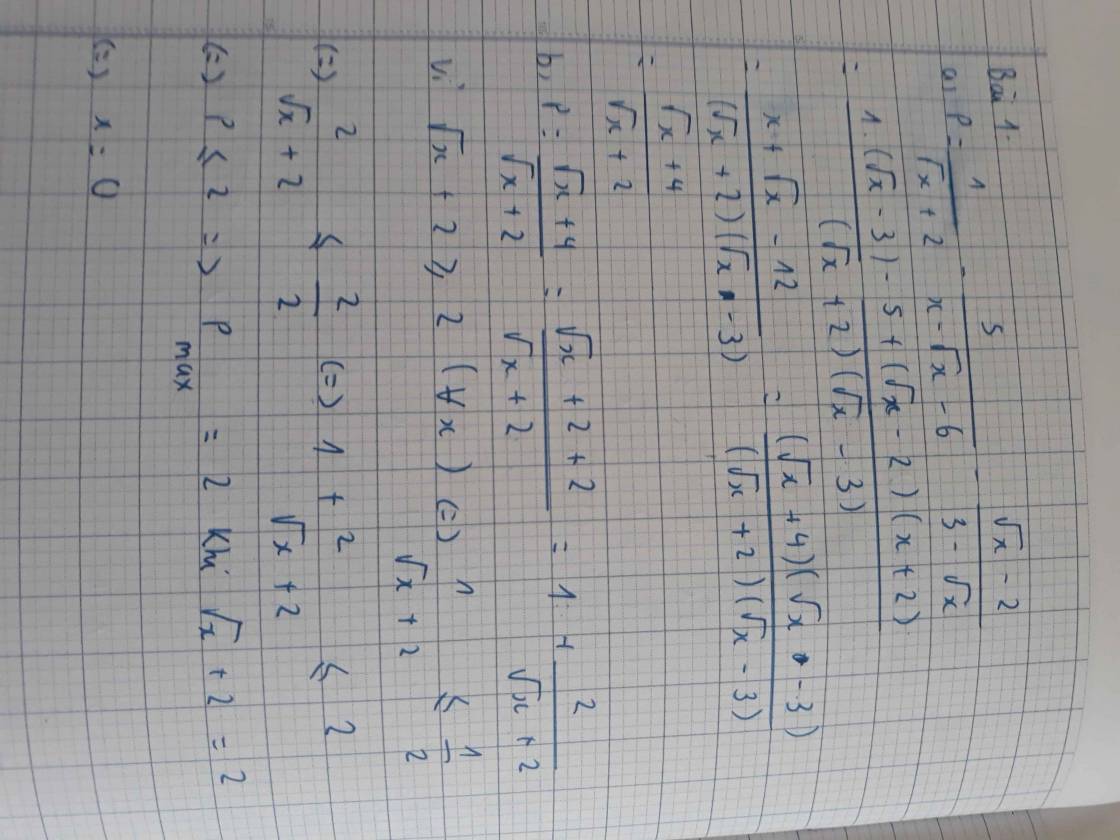 Bài 1.
a, P = 1/(√x + 2) - 5/(x - √x - 6) - (√x - 2)/(3 - √x)
= (1.(√x - 3) - 5 + (√x - 2)(x + 2))/((√x + 2)(√x - 3))
= (x + √x - 12)/((√x + 2)(√x - 3)) = ((√x + 4)(√x - 3))/((√x + 2)(√x - 3))
= (√x + 4)/(√x + 2)
b, P = (√x + 4)/(√x + 2) = (√x + 2 + 2)/(√x + 2) = 1 + 2/(√x + 2)
Vì √x + 2 ⩾ 2 (∀x) (=) 1/(√x + 2) ⩽ 1/2
(=) 2/(√x + 2) ⩽ 2/2 (=) 1 + 2/(√x + 2) ⩽ 2
(=) P ⩽ 2 => P max = 2 khi √x + 2 = 2
(=) x = 0